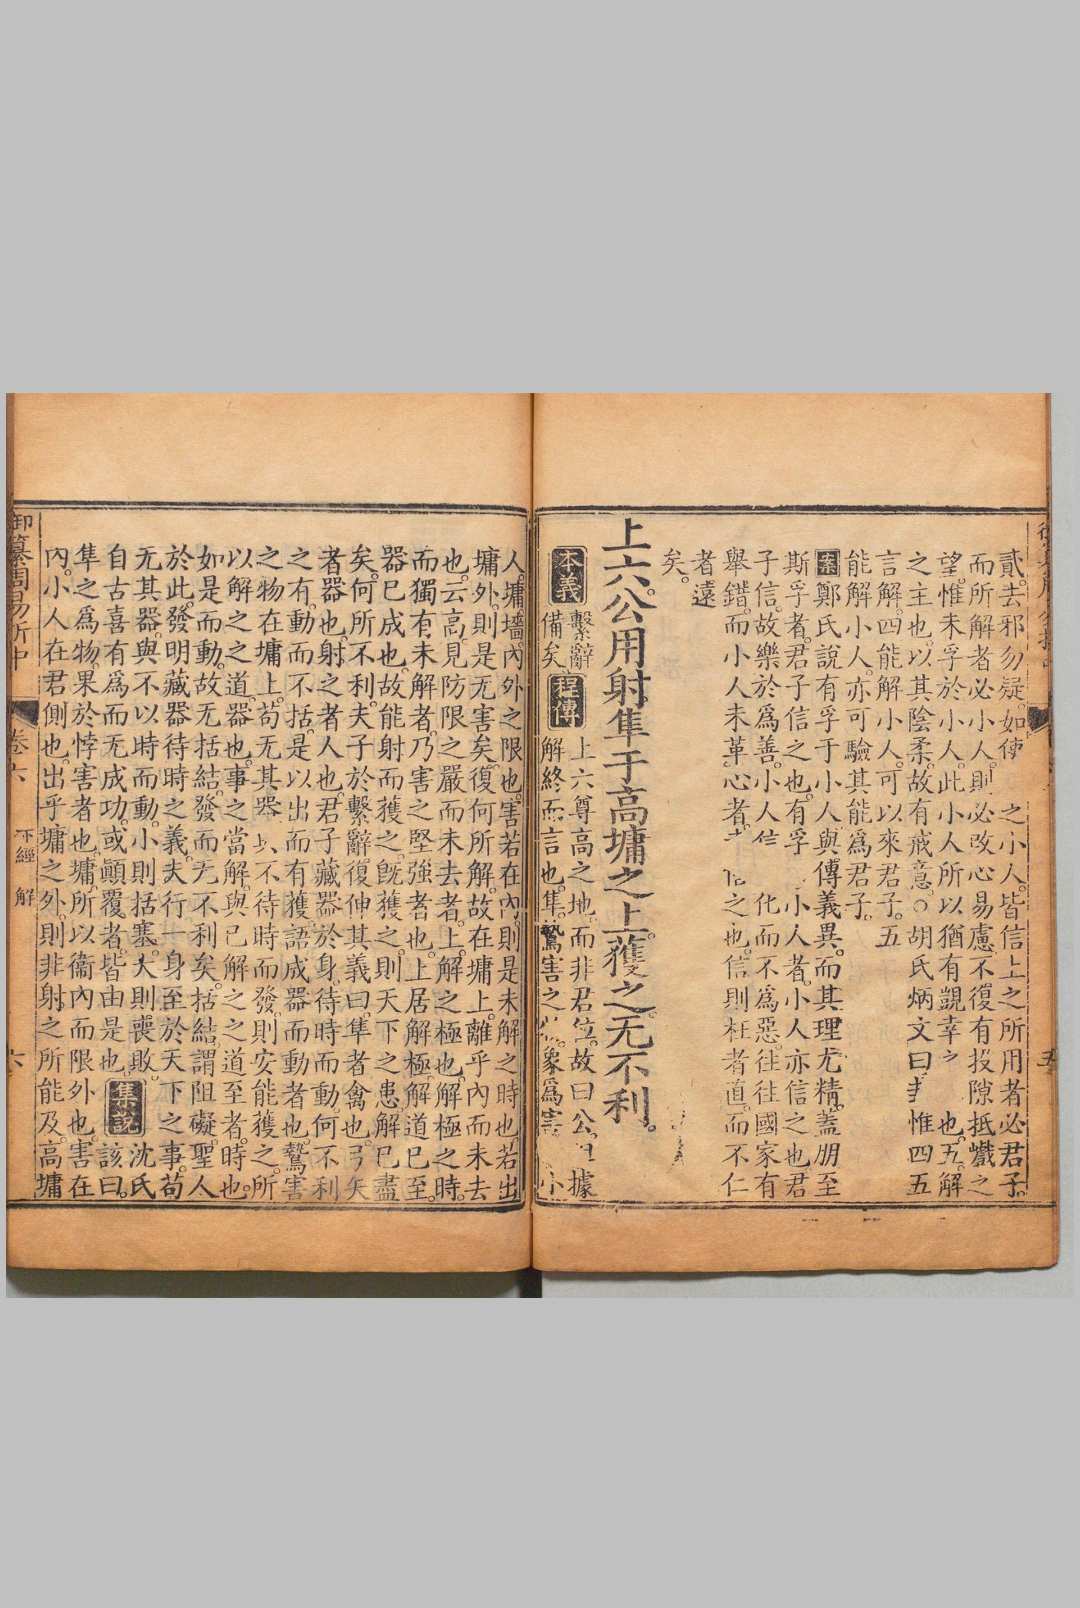 貳。去邪勿疑。如使之小人。皆信上之所用者必君子。
而所解者必小人。則必改心易慮。不復有投隙抵巇之
望。惟未孚於小人。此小人所以猶有覬幸之也。五。解
之主也。以其陰柔。故有戒意。○胡氏炳文曰。惟四五
言解。四能解小人。可以來君子。五
能解小人。亦可驗其能爲君子。
案鄭氏說有孚于小人。與傳義異。而其理尤精。蓋朋至
斯孚者。君子信之也。有孚小人者。小人亦信之也。君
子信。故樂於爲善。小人信化而不爲惡。往往國家有
舉錯。而小人未革心者。信之也。信則枉者直。而不仁
者遠
矣。
上六。公用射隼于高墉之上。獲之。无不利。
本義 繫辭
備矣。程傳 上六尊高之地。而非君位。故曰公。但據
解終而言也。隼。鷙害之物。象爲害小
人。墉。牆。內外之限也。害若在內。則是未解之時也。若出
墉外。則是无害矣。復何所解。故在墉上。離乎內而未去
也。云高。見防限之嚴而未去者。上。解之極也。解極之時。
而獨有未解者。乃害之堅強者也。上居解極。解道已至。
器已成也。故能射而獲之。旣獲之。則天下之患。解已盡
矣。何所不利。夫子於繫辭。復伸其義曰。隼者禽也。弓矢
者器也。射之者人也。君子藏器於身。待時而動。何不利
之有。動而不括。是以出而有獲。語成器而動者也。鷙害
之物在墉上。苟无其器。以不待時而發。則安能獲之。所
以解之之道。器也。事之當解。與已解之之道至者。時也。
如是而動。故无括結。發而无不利矣。括結。謂阻礙。聖人
於此。發明藏器待時之義。夫行一身至於天下之事。苟
无其器。與不以時而動。小則括塞。大則喪敗。
自古喜有爲而无成功。或顚覆者。皆由是也。集說 沈氏該曰。
隼之爲物。果於悖害者也。墉。所以衞內而限外也。害在
內。小人在君側也。出乎墉之外。則非射之所能及。高墉
御纂周易折中 卷六 下經 解 六